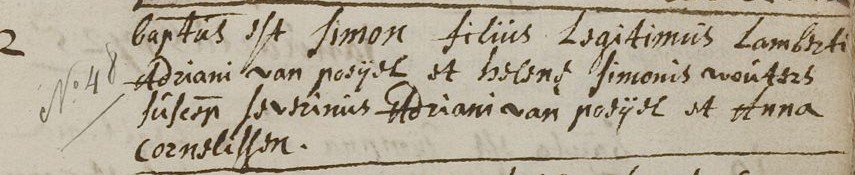 2 baptus est simon filius Legitimus Lamberti
No. 48 Adriani van poeijel et helenę simonis wouters
suscep severinus Adriani van poeijel et Anna
Cornelissen.